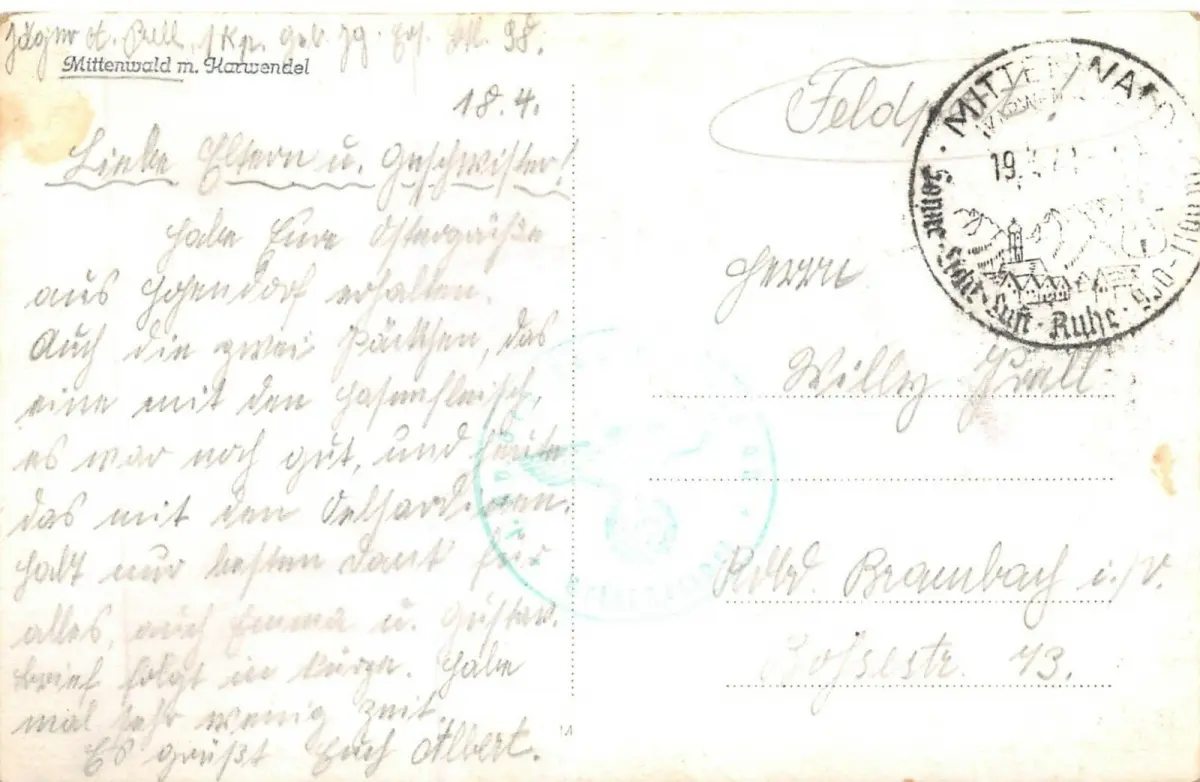 Jäger A. 1 Kp. Geb. Jg. Ers. Btl. 98.
Mittenwald m. Karwendel
18.4.
Liebe Eltern u. Geschwister!
Habe Eure Ostergrüße
aus Hohendorf erhalten.
Auch die zwei Päckchen, das
eine mit den Hasenfleisch,
es war noch gut, und heute
das mit den Oelsardinen.
Habt nur besten Dank für
alles, auch Emma u. Gustav.
Brief folgt in Kürze. Habe
mal sehr wenig Zeit.
Es grüßt Euch Albert.
Feldpost!
MITTENWALD
19
Sonne · Licht · Luft · Ruhe · 920
Herrn
Willy
Rdld Brambach i./V.
43.